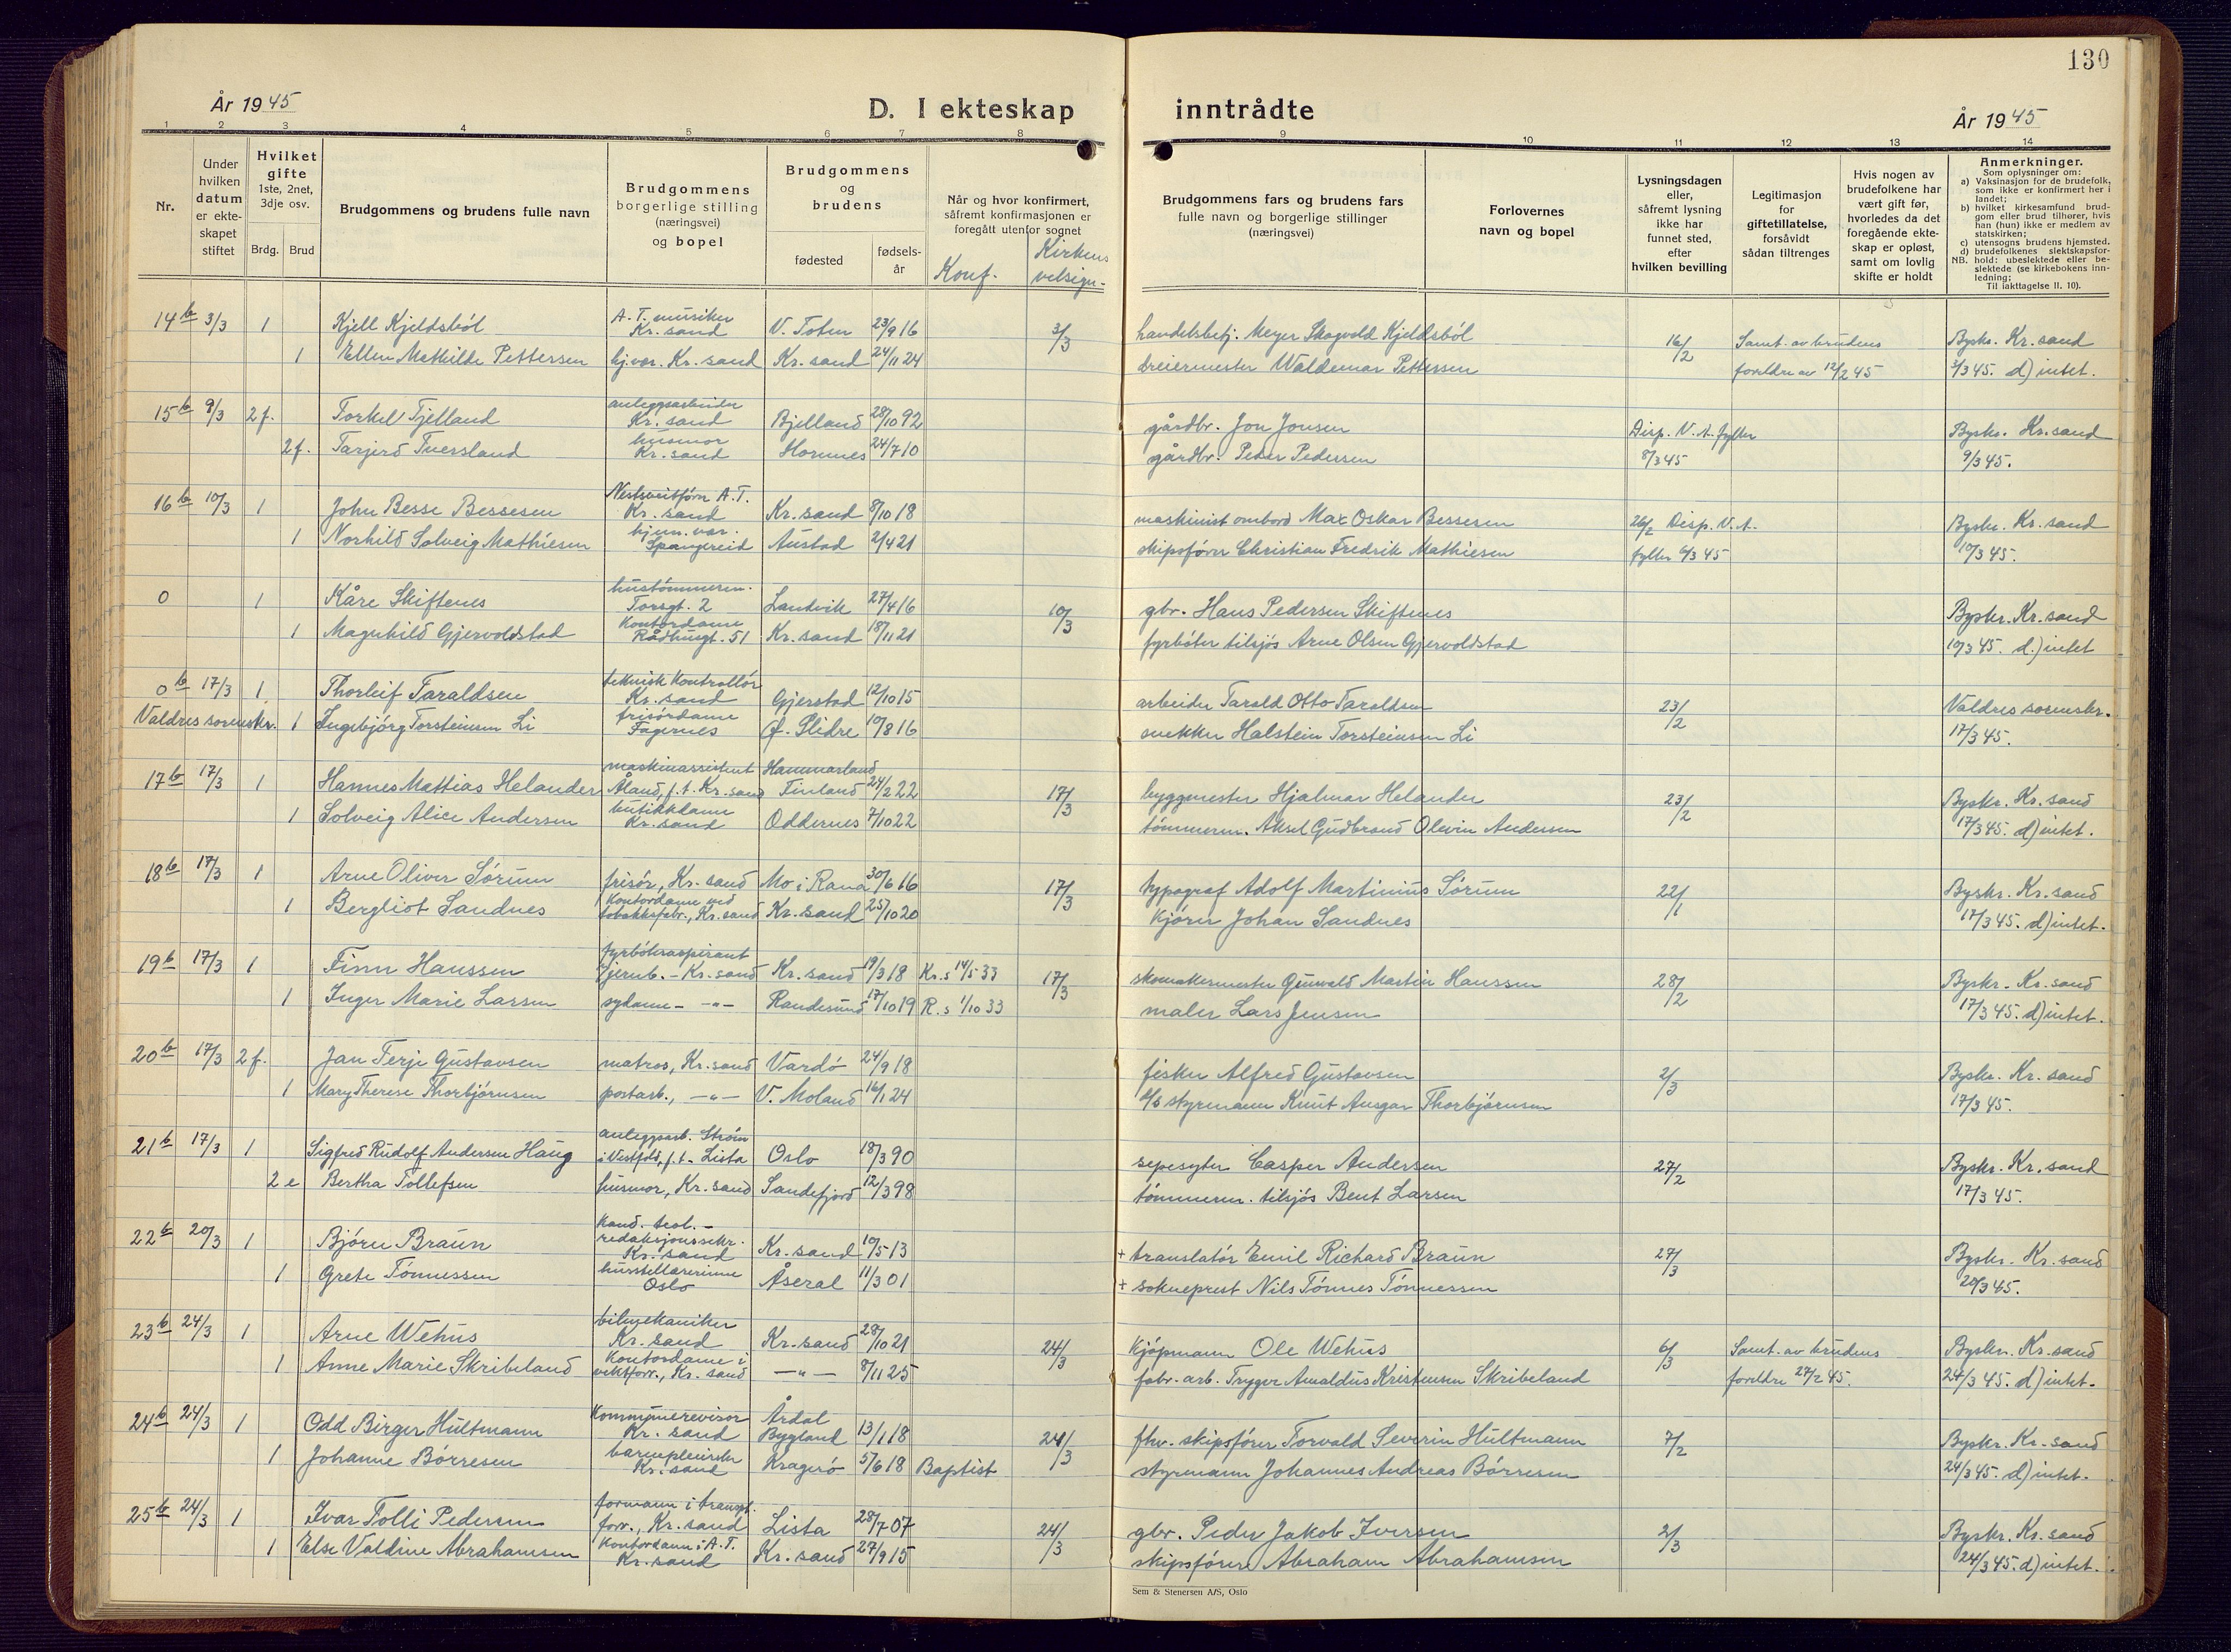 130
År 1945
D. I ekteskap inntrådte
År 1945
1 2 3 4 5 6 7 8 9 10 11 12 13 14
Nr.
Under hvilken datum er ekteskapet stiftet
Hvilket gifte 1ste, 2net, 3dje osv.
Brdg. Brud
Brudgommens og brudens fulle navn
Brudgommens borgerlige stilling (næringsvei) og bopel
Brudgommens og brudens
fødested
fødselsår
Når og hvor konfirmert, såfremt konfirmasjonen er foregått utenfor sognet
Konf.
Kirkens velsign.
Brudgommens fars og brudens fars fulle navn og borgerlige stillinger (næringsvei)
Forlovernes navn og bopel
Lysningsdagen eller, såfremt lysning ikke har funnet sted, efter hvilken bevilling
Legitimasjon for giftetillatelse, forsåvidt sådan tiltrenges
Hvis nogen av brudefolkene har vært gift før, hvorledes da det foregående ekteskap er opløst, samt om lovlig skifte er holdt
Anmerkninger.
Som oplysninger om:
a) Vaksinasjon for de brudefolk, som ikke er konfirmert her i landet;
b) hvilket kirkesamfund brudgom eller brud tilhører, hvis han (hun) ikke er medlem av statskirken;
c) utensogns brudens hjemsted.
d) brudefolkenes slektskapsforhold: ubeslektede eller beslektede (se kirkebokens innledning;
NB.
Til iakttagelse II. 10).
14b 3/3 1 Kjell Kjeldsböl A.T. musiker Kr.sand V. Toten 23/9 16 3/3 handelsbetj. Meyer Skogvold Kjeldsböl 16/2 Samt. av brudens Byskr. Kr.sand
1 Ellen Mathilde Pettersen hj.vær. Kr.sand Kr.sand 24/11 24 dreiermester Waldemar Pettersen foreldre av 12/2 45 3/3 45. d) intet.
15b 9/3 2f. Torkel Tjelland anleggsarbeider Kr.sand Bjelland 28/10 92 gårdbr. Jon Jonsen Disp. V.A. fylke Byskr. Kr.sand
2f. Tarjerd Tversland husmor Kr.sand Hornnes 24/7 10 gårdbr. Peder Pedersen 8/3 45 9/3 45.
16b 10/3 1 John Besse Bessesen A.T. Kr.sand Kr.sand 8/10 18 maskinist ombord Max Oskar Bessesen 26/2 Disp. V.A. Byskr. Kr.sand
1 Norhild Solveig Mathiesen hjem.vær Spangereid Austad 2/4 21 skipsfører Christian Fredrik Mathiesen fylke 6/3 45 10/3 45.
0 1 Kåre Skiftenes hustömmerm. Torsgt. 2 Landvik 27/4 16 10/3 gbr. Hans Pedersen Skiftenes Byskr. Kr.sand
1 Magnhild Gjervoldstad Kontordame Rådhusgt. 51 Kr.sand 18/11 21 fyrböter tilsjös Arne Olsen Gjervoldstad 10/3 45. d.) intet
0b 17/3 1 Thorleif Taraldsen teknisk Kontrollör Kr.sand Gjerstad 12/10 15 arbeider Tarald Otto Taraldsen 23/2 Valdres sorenskr.
Valdres sorenskr. 1 Ingebjörg Torsteinsen Li frisördame Fagernes Ø. Slidre 10/8 16 snekker Halstein Torsteinsen Li 17/3 45.
17b 17/3 1 Hannes Mattias Helander maskinassistent Åland, f.t. Kr.sand Hammarland Finland 24/2 22 17/3 byggmester Hjalmar Helander 23/2 Byskr. Kr.sand
1 Solveig Alice Andersen butikkdame Kr.sand Oddernes 7/10 22 tömmerm. Aksel Gudbrand Olevin Andersen 17/3 45. d) intet.
18b 17/3 1 Arne Oliver Sörum frisör, Kr.sand Mo i Rana 30/6 16 17/3 typograf Adolf Martinius Sörum 22/1 Byskr. Kr.sand
1 Bergliot Sandnes Kontordame ved tobakksfabr., Kr.sand Kr.sand 25/10 20 Kjörer Johan Sandnes 17/3 45. d) intet.
19b 17/3 1 Finn Hanssen fyrböteraspirant jernb. - Kr.sand Kr.sand 19/3 18 Kr.s 14/5 33 17/3 skomakermester Gunvald Martin Hanssen 28/2 Byskr. Kr.sand
1 Inger Marie Larsen sydame - -"- Randesund 17/10 19 R.s 1/10 33 maler Lars Jensen 17/3 45. d) intet.
20b 17/3 2f. Jan Terje Gustavsen matros, Kr.sand Vardö 24/9 18 fisker Alfred Gustavsen 2/3 Byskr. Kr.sand
1 Mary Therese Thorbjörnsen postarb., -"- V. Moland 16/1 24 styrmann Knut Ansgar Thorbjörnsen 17/3 45.
21b 17/3 1 Sigfred Rudolf Andersen Haug anleggsarb. Ström i Vestfold, f.t. Lista Oslo 18/3 90 sepesyder Casper Andersen 27/2 Byskr. Kr.sand
2e Bertha Tollefsen husmor, Kr.sand Sandefjord 12/3 98 tömmerm. tilsjös Bent Larsen 17/3 45.
22b 20/3 1 Björn Braun Kand. teol. - redaksjonssekr. Kr.sand Kr.sand 10/5 13 + translatör Emil Richard Braun 27/3 Byskr. Kr.sand
1 Grete Tönnessen husstellærerinne Oslo Åseral 11/3 01 + sokneprest Nils Tönnes Tönnessen 20/3 45.
23b 24/3 1 Arne Wehus bilmekaniker Kr.sand Kr.sand 28/10 21 24/3 Kjöpmann Ole Wehus 6/3 Samt. av brudens Byskr. Kr.sand
1 Anne Marie Skribeland Kontordame i vektforr., Kr.sand -"- 8/11 25 fabr.arb. Trygve Arnoldus Kristensen Skribeland foreldre 27/2 45. 24/3 45. d) intet.
24b 24/3 1 Odd Birger Hultmann Kommunerevisor Kr.sand Årdal Bygland 13/1 18 24/3 fhv. skipsförer Torvald Severin Hultmann 7/2 Byskr. Kr.sand
1 Johanne Börresen barnepleierske Kr.sand Kragerö 5/6 18 Baptist styrmann Johannes Andreas Börresen 24/3 45. d) intet.
25b 24/3 1 Ivar Tolli Pedersen formann i transpt. forr., Kr.sand Lista 28/7 07 24/3 gbr. Peder Jakob Iversen 2/3 Byskr. Kr.sand
1 Else Valdine Abrahamsen Kontordame i A.T. Kr.sand Kr.sand 27/9 15 skipsförer Abraham Abrahamsen 24/3 45. d) intet.
Sem & Stenersen A/S, Oslo